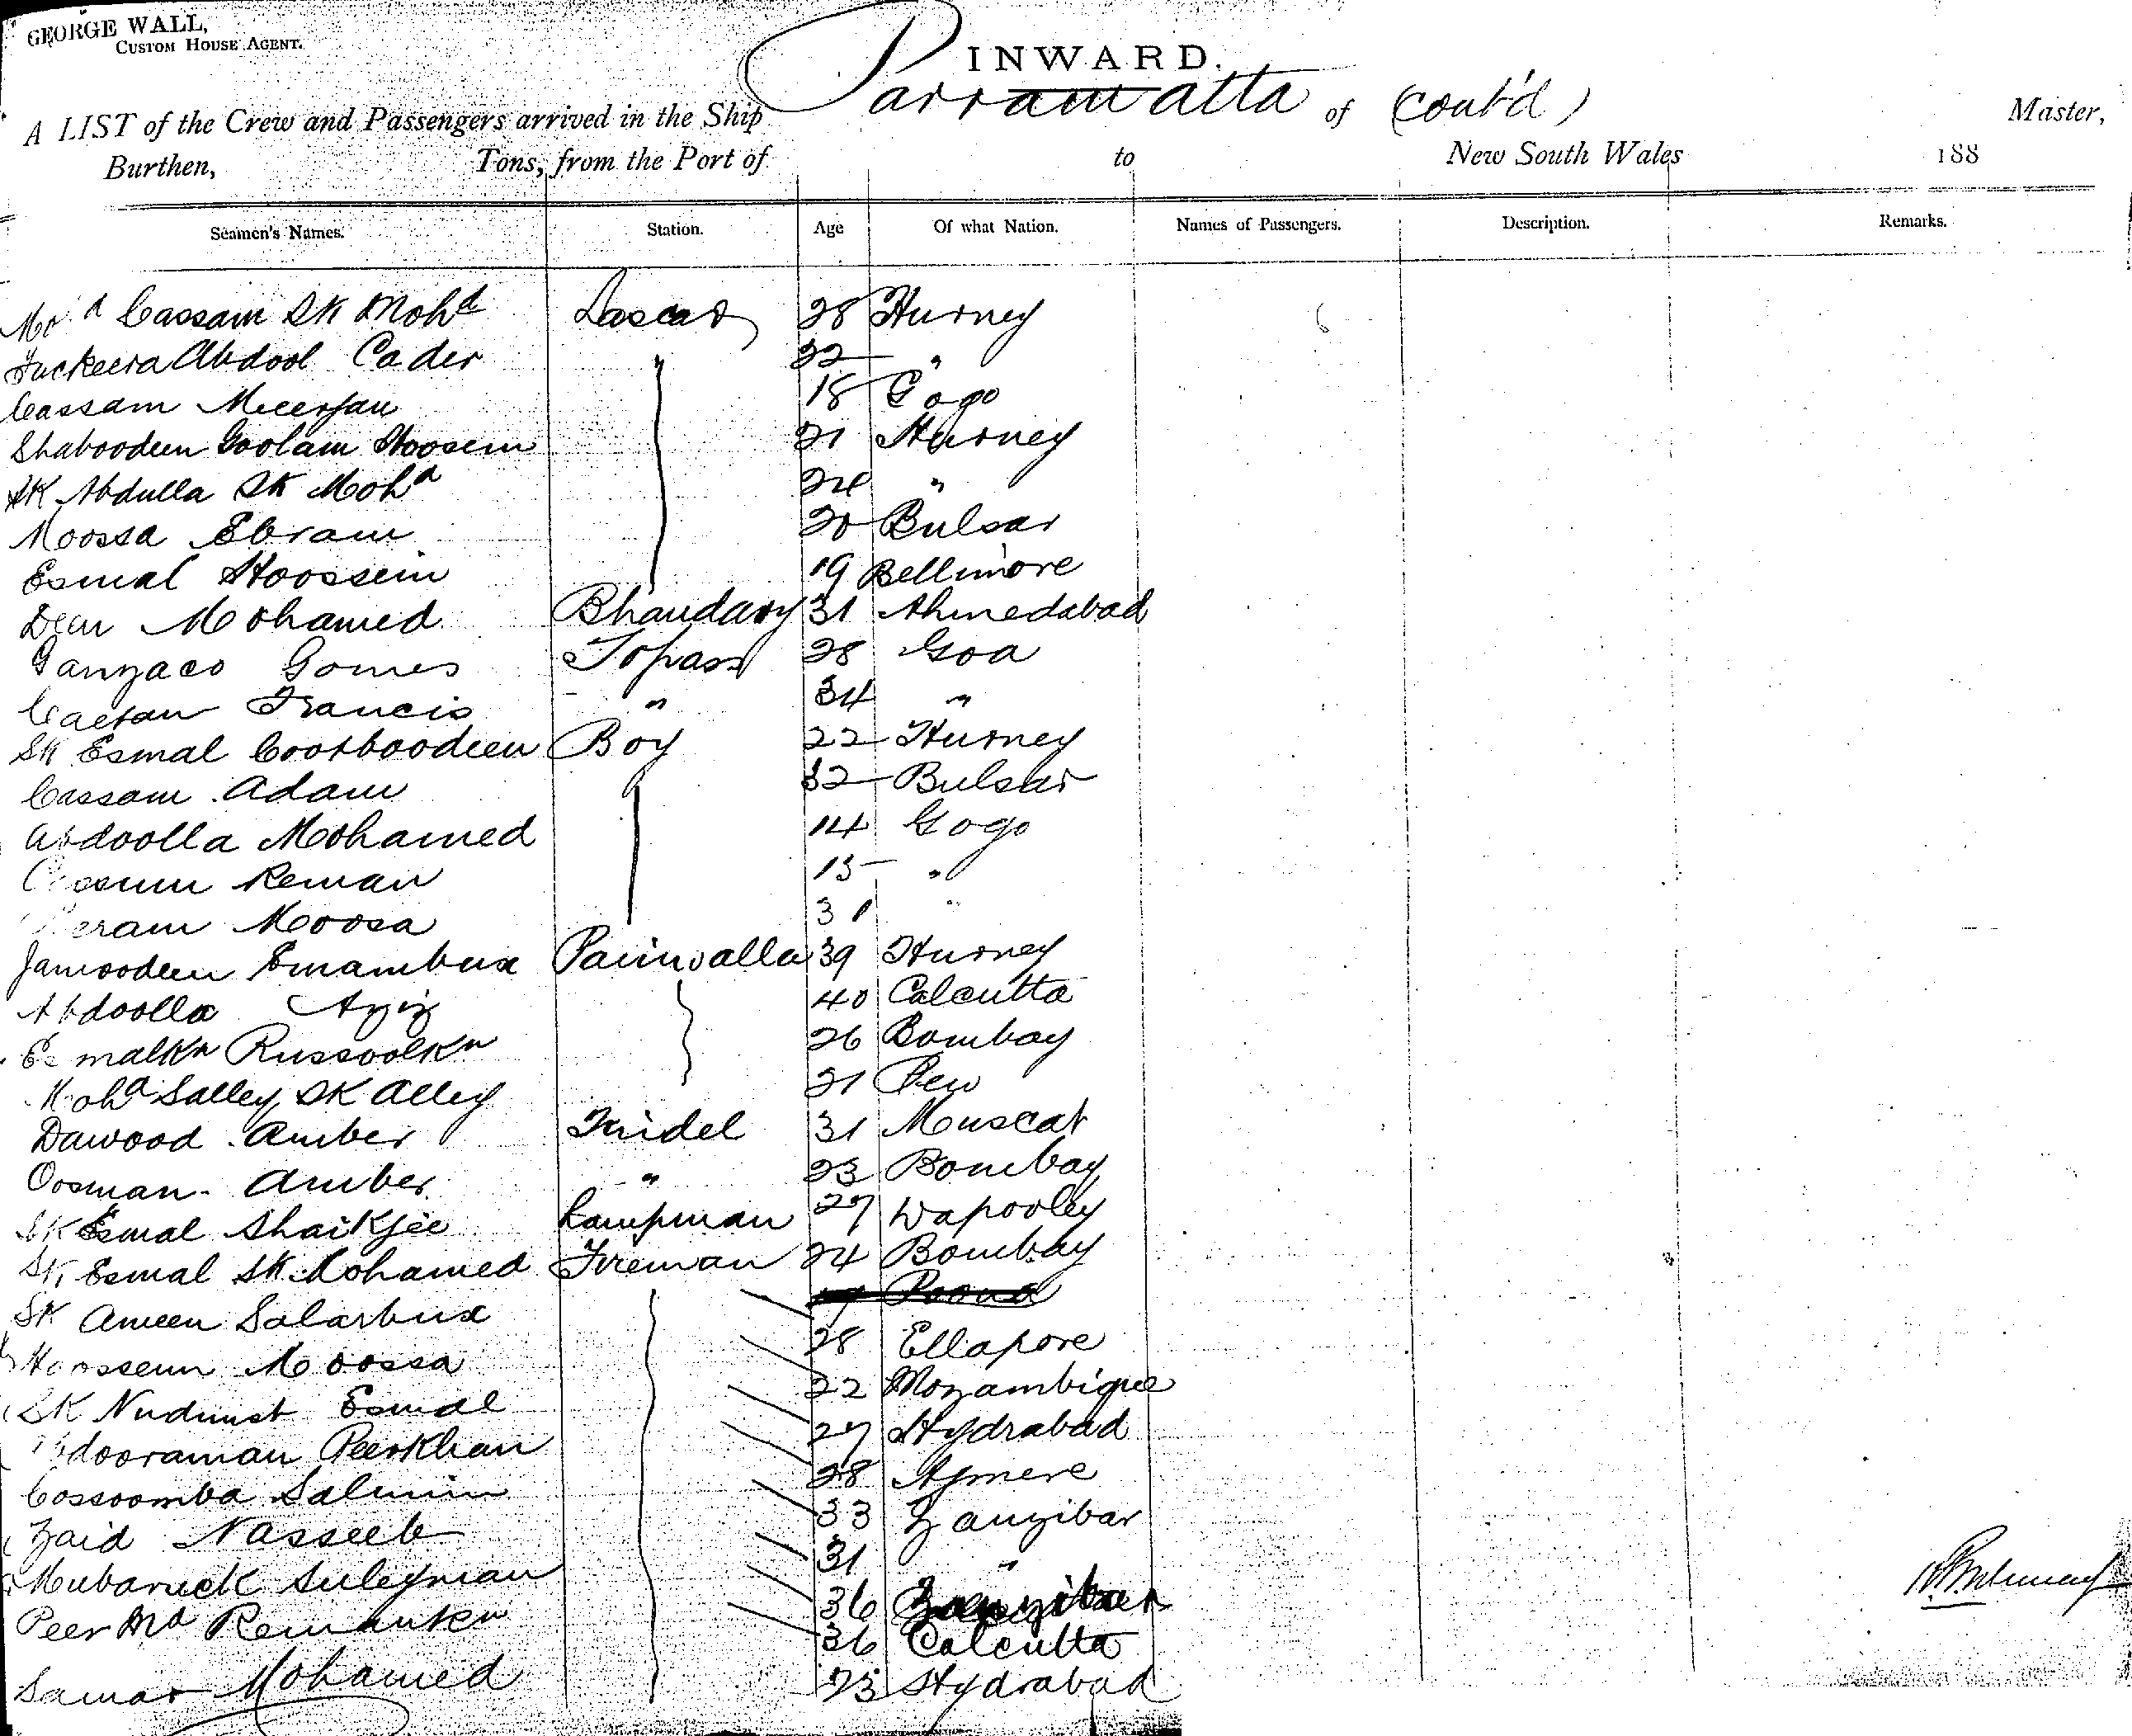 GEORGE WALL,
CUSTOM HOUSE AGENT.
INWARD.
A LIST of the Crew and Passengers arrived in the Ship Parramatta of (Cont'd) Master,
Burthen, Tons, from the Port of to New South Wales 188
Seamen's Names. Station. Age Of what Nation. Names of Passengers. Description. Remarks.
Mod Cassam SK Mohd Lascar 28 Hurney
Fuckeera Abdool Cader " 22 "
Cassam Meeerjan 18 Gogo
Shaboodeen Goolam Hoosein 21 Hurney
SK Abdulla SK Mohd 24 "
Moossa Ebram 20 Bulsar
Esmal Hoossein 19 Bellimore
Deen Mohamed Bhandary 31 Ahmedabad
Gomes Topass 28 Goa
Caetan Francis " 34 "
SK Esmal Cootboodeen Boy 22 Hurney
Cassam Adam " 32 Bulsar
Abdoolla Mohamed 14 Gogo
Reman 15 "
Moosa 31 "
Jamoodeen Emambux Paniwalla 39 Hurney
Abdoolla Aziz 40 Calcutta
Esmalkn Russoolkn 26 Bombay
Mohd Salley SK Alley 21 Pen
Dawood Amber Tindel 31 Muscat
Oosman Amber " 23 Bombay
SK Esmal Shaikjee Lampman 27 Wapooley
SK Esmal SK Mohamed Fireman 24 Bombay
SK Ameen Salarbux Poona
Hoosseun Moossa 28 Ellapore
SK Esmal 22 Mozambique
Abdooraman Peerkhan 27 Hydrabad
Cossoomba Salimin 28 Ajmere
Zaid Nasseeb 33 Zanzibar
Mubaruck Suleyman 31 "
Peer Md Remankn 36 Zanzibar
36 Calcutta
Samar Mohamed 23 Hydrabad